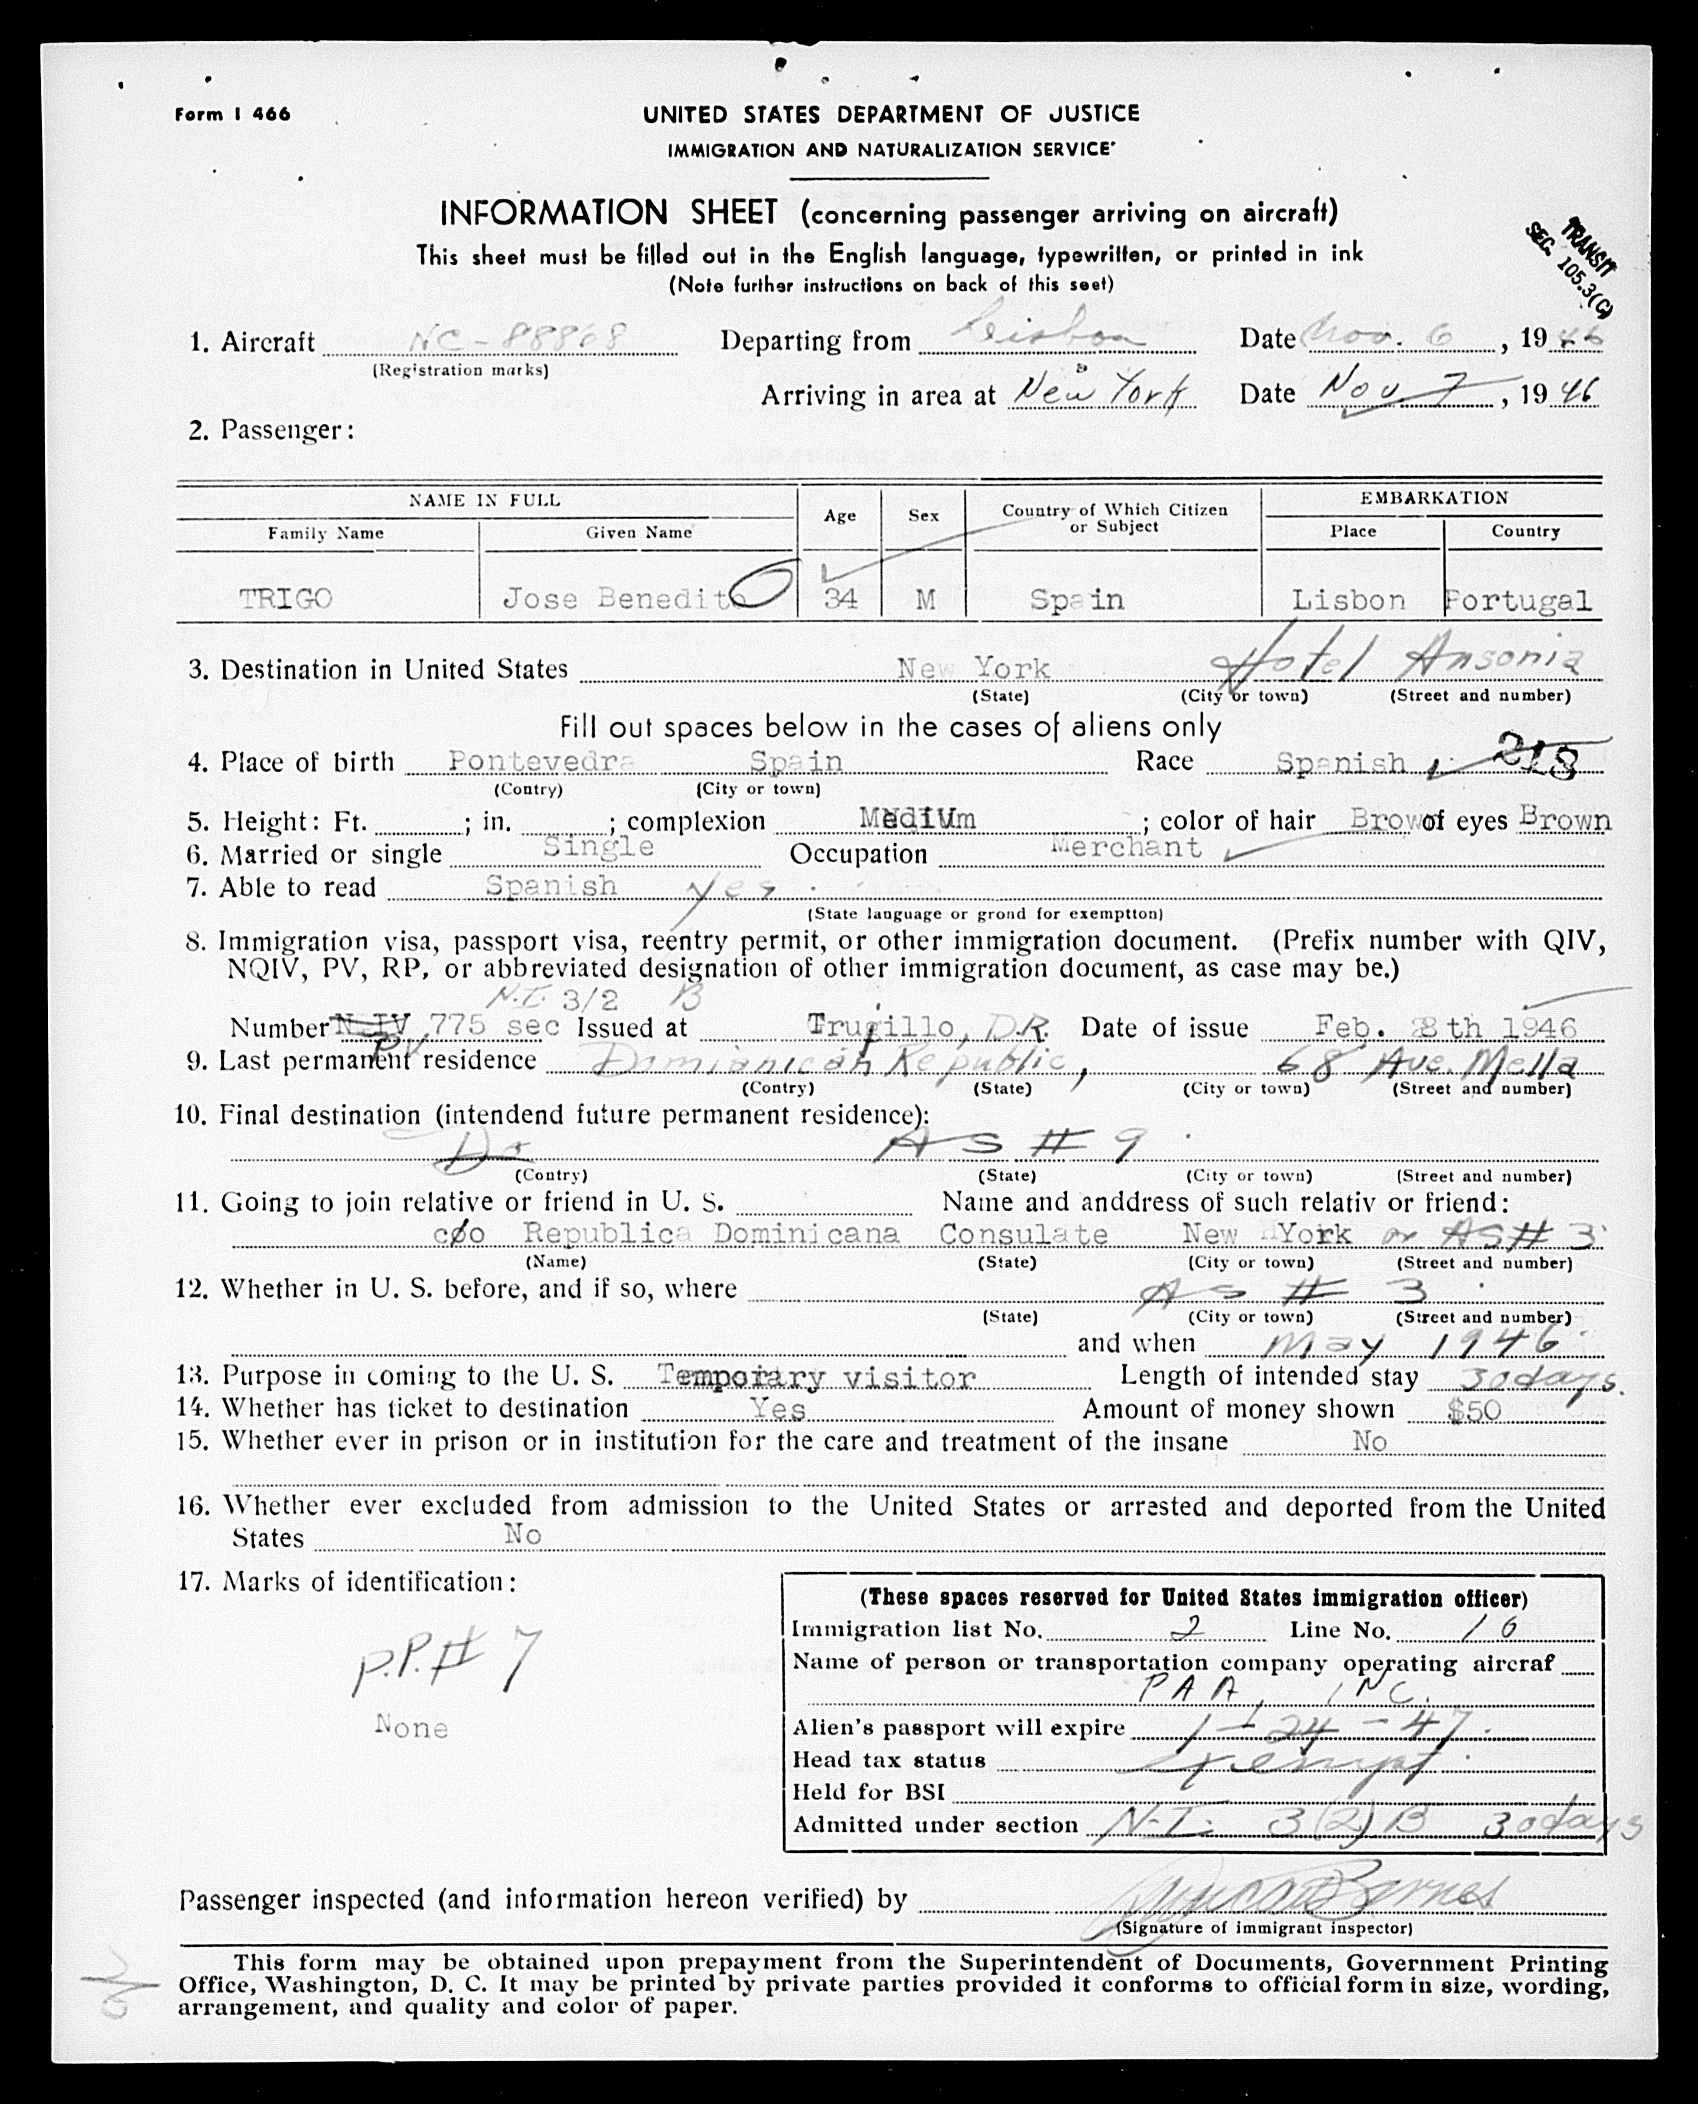 Form I 466
UNITED STATES DEPARTMENT OF JUSTICE
IMMIGRATION AND NATURALIZATION SERVICE
INFORMATION SHEET (concerning passenger arriving on aircraft)
This sheet must be filled out in the English language, typewritten, or printed in ink
(Note further instructions on back of this seet)
TRANSIT
SEC. 105.3(C)
1. Aircraft NC-88868 Departing from Lisbon Date Nov. 6, 1946
(Registration marks)
Arriving in area at New York Date Nov 7, 1946
2. Passenger:
NAME IN FULL Age Sex Country of Which Citizen or Subject EMBARKATION
Family Name Given Name Place Country
TRIGO Jose Benedito 34 M Spain Lisbon Portugal
3. Destination in United States New York Hotel Ansonia
(State) (City or town) (Street and number)
Fill out spaces below in the cases of aliens only
4. Place of birth Pontevedra Spain Race Spanish 218
(Contry) (City or town)
5. Height: Ft. ; in. ; complexion Medium ; color of hair Brown of eyes Brown
6. Married or single Single Occupation Merchant
7. Able to read Spanish yes
(State language or grond for exemptton)
8. Immigration visa, passport visa, reentry permit, or other immigration document. (Prefix number with QIV,
NQIV, PV, RP, or abbreviated designation of other immigration document, as case may be.)
N.I. 3/2 B
Number PV 775 sec Issued at Trugillo, D.R. Date of issue Feb. 28th 1946
9. Last permanent residence Dominican Republic, 68 Ave. Mella
(Contry) (State) (City or town) (Street and number)
10. Final destination (intendend future permanent residence):
Do AS # 9
(Contry) (State) (City or town) (Street and number)
11. Going to join relative or friend in U. S. Name and anddress of such relativ or friend:
c/o Republica Dominicana Consulate New York or AS# 3
(Name) (State) (City or town) (Street and number)
12. Whether in U. S. before, and if so, where AS # 3
(State) (City or town) (Street and number)
and when May 1946
13. Purpose in coming to the U. S. Temporary visitor Length of intended stay 30 days.
14. Whether has ticket to destination Yes Amount of money shown $50
15. Whether ever in prison or in institution for the care and treatment of the insane No
16. Whether ever excluded from admission to the United States or arrested and deported from the United
States No
17. Marks of identification:
P.P.# 7
None
(These spaces reserved for United States immigration officer)
Immigration list No. 2 Line No. 16
Name of person or transportation company operating aircraf
PAA, INC.
Alien's passport will expire 1-24-47.
Head tax status Exempt.
Held for BSI
Admitted under section N.I. 3(2)B 30 days
Passenger inspected (and information hereon verified) by Barnes
(Signature of immigrant inspector)
This form may be obtained upon prepayment from the Superintendent of Documents, Government Printing
Office, Washington, D. C. It may be printed by private parties provided it conforms to official form in size, wording,
arrangement, and quality and color of paper.